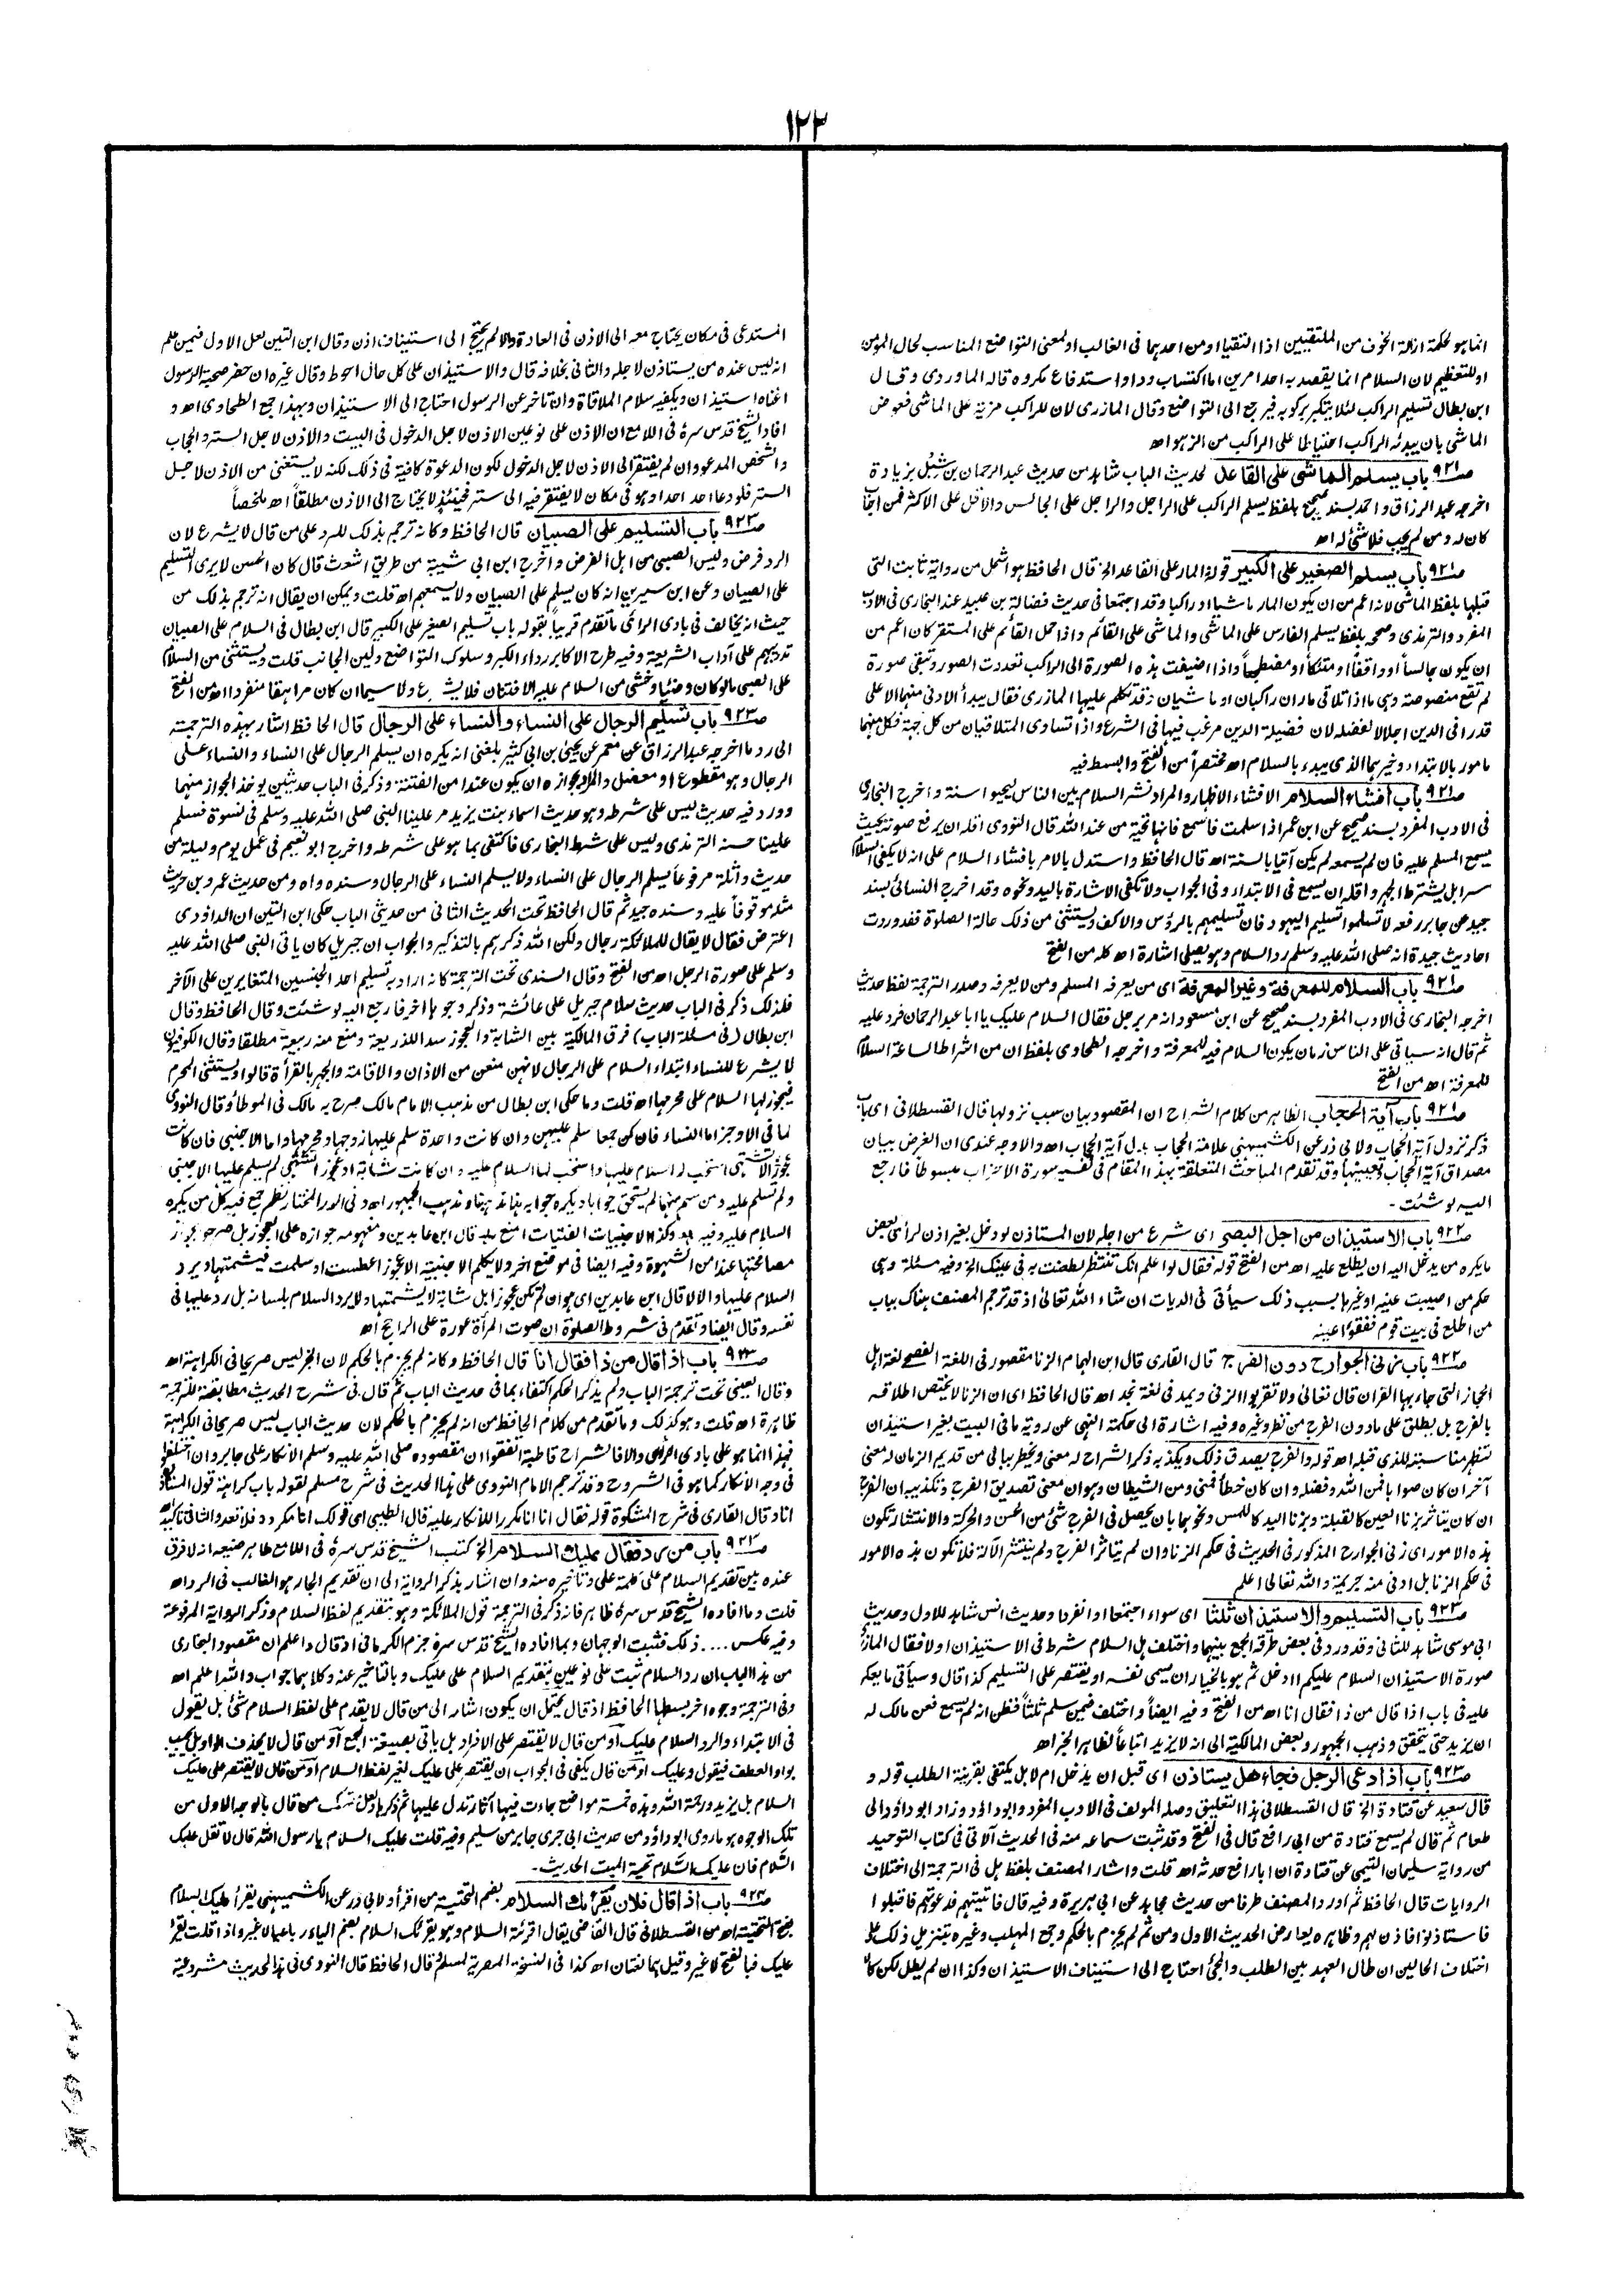 ١٢٢
انما هو لحكمة ازالة الخوف من الملتقيين اذا التقيا او من احدهما فى الغالب او لمعنى التواضع المناسب لحال المؤمن
او للتعظيم لان السلام انما يقصد به احد امرين اما اكتساب ود او استدفاع مكروه قاله الماوردى وقال
ابن بطال تسليم الراكب لئلا يتكبر بركوبه فيرجع الى التواضع وقال المازرى لان للراكب مزية على الماشى فعوض
الماشى بان يبدئه الراكب احتياطا على الراكب من الزهو اھ
صـ٩٢١ باب يسلم الماشى على القاعد لحديث الباب شاهد من حديث عبد الرحمان بن شبل بزيادة
اخرجه عبد الرزاق واحمد بسند صحيح بلفظ يسلم الراكب على الراجل والراجل على الجالس والاقل على الاكثر فمن اجاب
كان له ومن لم يجب فلا شئ له اھ
صـ٩٢١ باب يسلم الصغير على الكبير قوله المار على القاعد الخ قال الحافظ هو اشمل من رواية ثابت التى
قبلها بلفظ الماشى لانه اعم من ان يكون المار ماشيا او راكبا وقد اجتمعا فى حديث فضالة بن عبيد عند البخارى فى الادب
المفرد والترمذى وصححه بلفظ يسلم الفارس على الماشى والماشى على القائم واذا حمل القائم على المستقر كان اعم من
ان يكون جالساً او واقفاً او متكئاً او مضطجعاً واذا اضيفت هذه الصورة الى الراكب تعددت الصور وتبقى صورة
لم تقع منصوصة وهى ما اذا تلاقى ماران راكبان او ماشيان وقد تكلم عليها المازرى فقال يبدأ الادنى منهما الاعلى
قدرا فى الدين اجلالا لفضله لان فضيلة الدين مرغب فيها فى الشرع واذ اتساوى المتلاقيان من كل جهة فكل منهما
مامور بالابتداء وخيرهما الذى يبدء بالسلام اھ مختصراً من الفتح وابسط فيه
صـ٩٢١ باب افشاء السلام الافشاء الاظهار والمراد نشر السلام بين الناس ليحيوا سنة واخرج البخارى
فى الادب المفرد بسند صحيح عن ابن عمر اذا سلمت فاسمع فانها تحية من عند الله قال النووى اقله ان يرفع صوته بحيث
يسمع المسلم عليه فان لم يسمعه لم يكن آتيا بالسنة اھ قال الحافظ واستدل بالامر بافشاء السلام على انه لا يكفى السلام
سرا بل يشترط الجهر واقله ان يسمع فى الابتداء وفى الجواب ولا تكفى الاشارة باليد ونحوه وقد اخرج النسائى بسند
جيد عن جابر رفعه لا تسلموا تسليم اليهود فان تسليمهم بالرؤس والاكف ويستثنى من ذلك حالة الصلوة فقد وردت
احاديث جيدة انه صلى الله عليه وسلم رد السلام وهو يصلى اشارة اھ كله من الفتح
صـ٩٢١ باب السلام للمعرفة وغير المعرفة اى من يعرفه المسلم ومن لا يعرفه وصدر الترجمة لفظ حديث
اخرجه البخارى فى الادب المفرد بسند صحيح عن ابن مسعود انه مر برجل فقال السلام عليك يا ابا عبد الرحمان فرد عليه
ثم قال انه سياتى على الناس زمان يكون السلام فيه للمعرفة واخرجه الطحاوى بلفظ ان من اشراط الساعة السلام
للمعرفة اھ من الفتح
صـ٩٢١ باب آية الحجاب الظاهر من كلام الشراح ان المقصود بيان سبب نزولها قال القسطلانى اى باب
ذكر نزول آية الحجاب ولابى ذر عن الكشميهنى علامة الحجاب بدل آية الحجاب اھ والاوجه عندى ان الغرض بيان
مصداق آية الحجاب وتعيينها وقد تقدم المباحث المتعلقة بهذا المقام فى تفسير سورة الاحزاب مبسوطا فارجع
اليه لو شئت ۔
صـ٩٢٢ باب الاستيذان من اجل البصر اى شرع من اجله لان المستاذن لو دخل بغير اذن لرأى بعض
ما يكره من يدخل اليه ان يطلع عليه اھ من الفتح قوله فقال لو اعلم انك تنتظر لطعنت به فى عينك الخ وفيه مسئلة وهى
حكم من اصيبت عينه او غيرها بسبب ذلك سيأتى فى الديات ان شاء الله تعالىٰ اذ قد ترجم المصنف هناك بباب
من اطلع فى بيت قوم ففقؤا عينه
صـ٩٢٢ باب زنى الجوارح دون الفرج قال القارى قال ابن الهمام الزنا مقصور فى اللغة الفصحى لغة اهل
الحجاز التى جاء بها القران قال تعالىٰ ولا تقربوا الزنى ويمد فى لغة نجد اھ قال الحافظ اى ان الزنا لا يختص اطلاقه
بالفرج بل يطلق على ما دون الفرج من نظر وغيره وفيه اشارة الى حكمة النهى عن روية ما فى البيت بغير استيذان
لتظهر مناسبته للذى قبله اھ قوله والفرج يصدق ذلك ويكذبه ذكر الشراح له معنى ويخطر ببالى من قديم الزمان له معنى
آخر ان كان صوابا فمن الله وفضله وان كان خطأ فمنى ومن الشيطان وهو ان معنى تصديق الفرج وتكذيبه ان الفرج
ان كان يتاثر بزنا العين كالقبلة وبزنا اليد كاللمس ونحوهما بان يحصل فى الفرج شئ من الحس والحركة والانتشار تكون
هذه الامور اى زنى الجوارح المذكور فى الحديث فى حكم الزنا وان لم يتاثر الفرج ولم ينتشر الآلة فلا تكون هذه الامور
فى حكم الزنا بل ادنى منه جريمة والله تعالى اعلم
صـ٩٢٣ باب التسليم والاستيذان ثلثا اى سواء اجتمعا او انفردا وحديث انس شاهد للاول وحديث
ابى موسى شاهد للثانى وقد ورد فى بعض طرقه الجمع بينهما واختلف هل السلام شرط فى الاستيذان اولا فقال المازرى
صورة الاستيذان السلام عليكم اادخل ثم هو بالخيار ان يسمى نفسه او يقتصر على التسليم كذا قال وسيأتى ما يعكر
عليه فى باب اذا قال من ذا فقال انا اھ من الفتح وفيه ايضاً واختلف فيمن سلم ثلثاً فظن انه لم يسمع فعن مالك له
ان يزيد حتى يتحقق وذهب الجمهور وبعض المالكية الى انه لا يزيد اتباعاً لظاهر الخبر اھ
صـ٩٢٣ باب اذا دعى الرجل فجاء هل يستاذن اى قبل ان يدخل ام لا بل يكتفى بقرينة الطلب قوله و
قال سعيد عن قتادة الخ قال القسطلانى هذا التعليق وصله المولف فى الادب المفرد وابو داؤد وزاد ابو داؤد الى
طعام ثم قال لم يسمع قتادة من ابى رافع قال فى الفتح وقد ثبت سماعه منه فى الحديث الآتى فى كتاب التوحيد
من رواية سليمان التيمى عن قتادة ان ابا رافع حدثه اھ قلت واشار المصنف بلفظ هل فى الترجمة الى اختلاف
الروايات قال الحافظ ثم اورد المصنف طرفا من حديث مجاهد عن ابى هريرة وفيه قال فاتيتهم فدعوتهم فاقبلوا
فاستاذنوا فاذن لهم وظاهره يعارض الحديث الاول ومن ثم لم يجزم بالحكم وجمع المهلب وغيره بتنزيل ذلك على
اختلاف الحالين ان طال العهد بين الطلب والمجئ احتاج الى استيناف الاستيذان وكذا ان لم يطل لكن كان
المستدعى فى مكان يحتاج معه الى الاذن فى العادة والا لم يحتج الى استيناف اذن وقال ابن التين لعل الاول فيمن علم
انه ليس عنده من يستاذن لاجله والثانى بخلافه قال والاستيذان على كل حال احوط وقال غيره ان حضر صحبة الرسول
اغناه استيذان ويكفيه سلام الملاقاة وان تاخر عن الرسول احتاج الى الاستيذان وبهذا جمع الطحاوى اھ و
افاد الشيخ قدس سره فى اللامع ان الاذن على نوعين الاذن لاجل الدخول فى البيت والاذن لاجل الستر والحجاب
والشخص المدعو وان لم يفتقر الى الاذن لاجل الدخول لكون الدعوة كافية فى ذلك لكنه لا يستغنى من الاذن لاجل
الستر فلو دعا احد احدا وهو فى مكان لا يفتقر فيه الى ستر فحينئذ لا يحتاج الى الاذن مطلقاً اھ ملخصاً
صـ٩٢٣ باب التسليم على الصبيان قال الحافظ وكانه ترجم بذلك للرد على من قال لا يشرع لان
الرد فرض وليس الصبى من اهل الفرض واخرج ابن ابى شيبة من طريق اشعث قال كان الحسن لا يرى التسليم
على الصبيان وعن ابن سيرين انه كان يسلم على الصبيان ولا يسمعهم اھ قلت ويمكن ان يقال انه ترجم بذلك من
حيث انه يخالف فى بادى الرأى ما تقدم قريباً بقوله باب تسليم الصغير على الكبير قال ابن بطال فى السلام على الصبيان
تدريبهم على آداب الشريعة وفيه طرح الاكابر رداء الكبر وسلوك التواضع ولين الجانب قلت ويستثنى من السلام
على الصبى ما لو كان وضيئا وخشى من السلام عليه الافتتان فلا يشرع ولا سيما ان كان مراهقا منفردا اھ من الفتح
صـ٩٢٣ باب تسليم الرجال على النساء والنساء على الرجال قال الحافظ اشار بهذه الترجمة
الى رد ما اخرجه عبد الرزاق عن معمر عن يحيىٰ بن ابى كثير بلغنى انه يكره ان يسلم الرجال على النساء والنساء على
الرجال وهو مقطوع او معضل والمراد بجوازه ان يكون عند امن الفتنة وذكر فى الباب حديثين يوخذ الجواز منهما
وورد فيه حديث ليس على شرطه وهو حديث اسماء بنت يزيد مر علينا النبى صلى الله عليه وسلم فى نسوة فسلم
علينا حسنه الترمذى وليس على شرط البخارى فاكتفى بما هو على شرطه واخرج ابو نعيم فى عمل يوم وليلة من
حديث واثلة مرفوعاً يسلم الرجال على النساء ولا يسلم النساء على الرجال وسنده واه ومن حديث عمرو بن حريث
مثله موقوفاً عليه وسنده جيد ثم قال الحافظ تحت الحديث الثانى من حديثى الباب حكى ابن التين ان الداؤدى
اعترض فقال لا يقال للملائكة رجال ولكن الله ذكرهم بالتذكير والجواب ان جبريل كان ياتى النبى صلى الله عليه
وسلم على صورة الرجل اھ من الفتح وقال السندى تحت الترجمة كانه اراد به تسليم احد الجنسين المتغايرين على الآخر
فلذلك ذكر فى الباب حديث سلام جبريل على عائشة وذكر وجوها اخر فارجع اليه لو شئت وقال الحافظ وقال
ابن بطال (فى مسئلة الباب) فرق المالكية بين الشابة والعجوز سدا للذريعة ومنع منه ربيعة مطلقا وقال الكوفيون
لا يشرع للنساء ابتداء السلام على الرجال لانهن منعن من الاذان والاقامة والجهر بالقرأة قالوا ويستثنى المحرم
فيجوز لها السلام على محرمها اھ قلت وما حكى ابن بطال من مذهب الامام مالك صرح به مالك فى الموطأ وقال النووى
كما فى الاوجز اما النساء فان كن جمعا سلم عليهن وان كانت واحدة سلم عليها زوجها ومحرمها واما الاجنبى فان كانت
عجوزا لا تشتهى استحب له السلام عليها واستحب لها السلام عليه وان كانت شابة او عجوز تشتهى لم يسلم عليها الاجنبى
ولم تسلم عليه ومن سلم منهما لم يستحق جوابا ويكره جوابه هذا مذهبنا ومذهب الجمهور اھ وفى الدر المختار نظم جمع فيه كل من يكره
السلام عليه وفيه وكذا الاجنبيات الفتيات امنع قال ابن عابدين ومفهومه جوازه على العجوز بل صرحوا بجواز
مصافحتها عند امن الشهوة وفيه ايضا فى موضع اخر ولا يكلم الاجنبية الا عجوزا عطست او سلمت فيشمتها ويرد
السلام عليها والا لا قال ابن عابدين اى وان لم تكن عجوزا بل شابة لا يشمتها ولا يرد السلام بلسانه بل رد عليها فى
نفسه وقال ايضا وتقدم فى شروط الصلوة ان صوت المرأة عورة على الراجح اھ
صـ٩٢٣ باب اذا قال من ذا فقال انا قال الحافظ وكانه لم يجزم بالحكم لان الخبر ليس صريحا فى الكراهة اھ
وقال العينى تحت ترجمة الباب ولم يذكر الحكم اكتفاء بما فى حديث الباب ثم قال فى شرح الحديث مطابقته للترجمة
ظاهرة اھ قلت وهو كذلك وما تقدم من كلام الحافظ من انه لم يجزم بالحكم لان حديث الباب ليس صريحا فى الكراهة
فهذا انما هو على بادى الرأى والا فالشراح قاطبة اتفقوا ان مقصوده صلى الله عليه وسلم الانكار على جابر وان اختلفوا
فى وجه الانكار كما هو فى الشروح وقد ترجم الامام النووى على هذا الحديث فى شرح مسلم بقوله باب كراهة قول المستاذن
انا وقال القارى فى شرح المشكوة قوله فقال انا انا مكررا للانكار عليه قال الطيبى اى قولك انا مكروه فلا تعد والثانى تاكيد اھ
صـ٩٢٣ باب من رد فقال عليك السلام الخ كتب الشيخ قدس سره فى اللامع ظاهر صنيعه انه لا فرق
عنده بين تقديم السلام على كلمة على وتأخيره منه وان اشار بذكر الرواية الى ان تقديم الجار هو الغالب فى الرد اھ
قلت وما افاده الشيخ قدس سره ظاهر فانه ذكر فى الترجمة قول الملائكة وهو بتقديم لفظ السلام وذكر الرواية المرفوعة
وفيه عكس .... ذلك فثبت الوجهان وبما افاده الشيخ قدس سره جزم الكرمانى اذ قال واعلم ان مقصود البخارى
من هذا الباب ان رد السلام ثبت على نوعين بتقديم السلام على عليك وبالتاخير عنه وكلاهما جواب والله اعلم اھ
وفى الترجمة وجوه اخر بسطها الحافظ اذ قال يحتمل ان يكون اشار الى من قال لا يقدم على لفظ السلام شئ بل يقول
فى الابتداء والرد السلام عليك او من قال لا يقتصر على الافراد بل ياتى بصيغة الجمع او من قال لا يحذف الواو بل يجيب
بواو العطف فيقول وعليك او من قال يكفى فى الجواب ان يقتصر على عليك بغير لفظ السلام او من قال لا يقتصر على عليك
السلام بل يزيد ورحمة الله وهذه خمسة مواضع جاءت فيها آثار تدل عليها ثم ذكرها من قال بالوجه الاول من
تلك الوجوه بما روى ابو داؤد من حديث ابى جرى جابر بن سليم وفيه قلت عليك السلام يا رسول الله قال لا تقل عليك
السلام فان عليك السلام تحية الميت الحديث ۔
صـ٩٢٣ باب اذا قال فلان يقرئك السلام بضم التحتية من اقرأ ولابى ذر عن الكشميهنى يقرأ عليك السلام
بفتح التحتية اھ من القسطلانى قال القاضى يقال اقرئه السلام وهو يقرئك السلام بضم الياء رباعيا لا غير واذا قلت يقرأ
عليك فبالفتح لا غير وقيل هما لغتان اھ كذا فى النسخة المصرية لمسلم قال الحافظ قال النووى فى هذا الحديث مشروعية